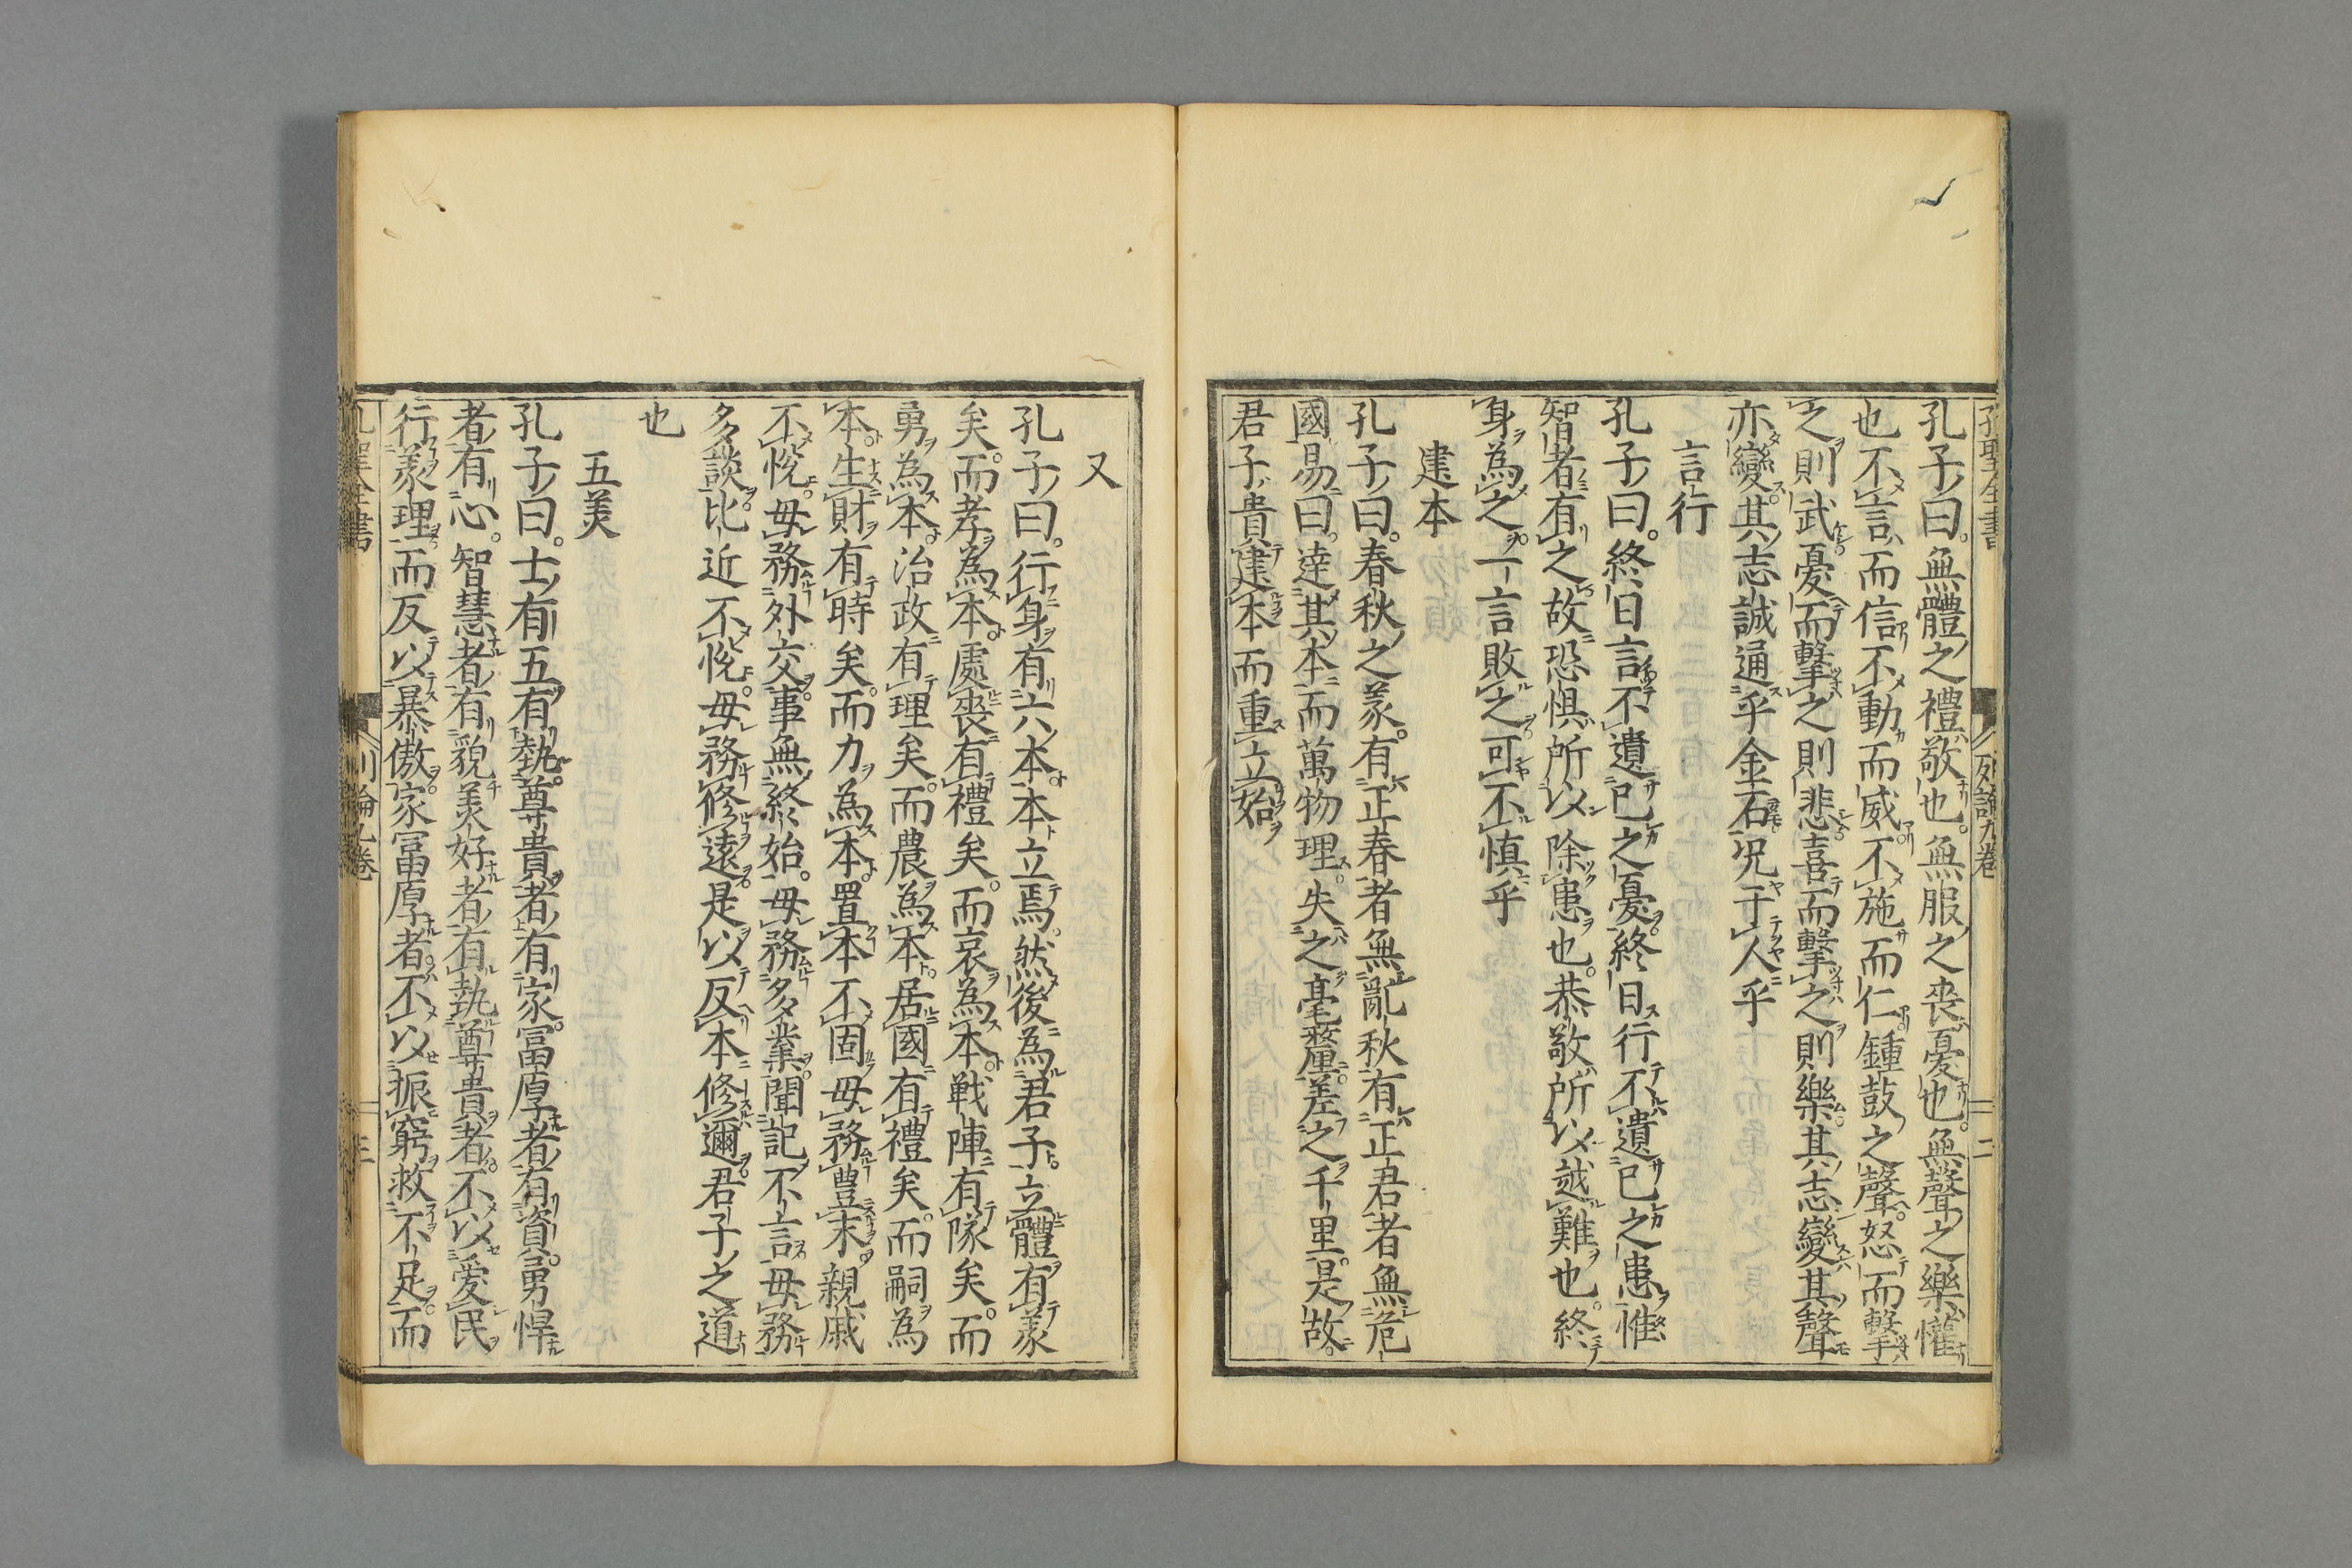 孔聖全書
列論九卷
二
孔子曰。無體之禮敬也。無服之喪憂也。無聲之樂懽
也不言而信不動而威不施而仁鍾鼓之聲。怒而擊
之則武憂而擊之則悲喜而擊之則樂其志變其聲
亦變其志誠通乎金石况于人乎
言行
孔子曰。終日言不遺已之憂終日行不遺已之患惟
智者有之故恐惧所以除患也。恭敬所以越難也。終
身為之一言敗之可不慎乎
建本
孔子曰。春秋之義。有正春者無亂秋有正君者無危
國易曰。建其本而萬物理。失之毫釐差之千里。是故
君子貴建本而重立始
又
孔子曰。行身有六本本立焉。然後為君子立體有義
矣。而孝為本處喪有禮矣。而哀為本。戦陣有隊矣。而
勇為本治政有理矣。而農為本。居國有禮矣。而嗣為
本生財有時矣。而力為本置本不固毋務豊末親戚
不悅毋務外交。事無終始。毋務多業聞記不言毋務
多談比近不悅毋務修遠是以反本修邇君子之道
也
五美
孔子曰。士有五有埶。尊貴者有家富厚者有資。勇悍
者有心。智慧者有貌美好者有埶尊貴者不以愛民
行義理而反以暴傲家富厚者。不以振窮救不足而
孔聖全書
列論九卷
三